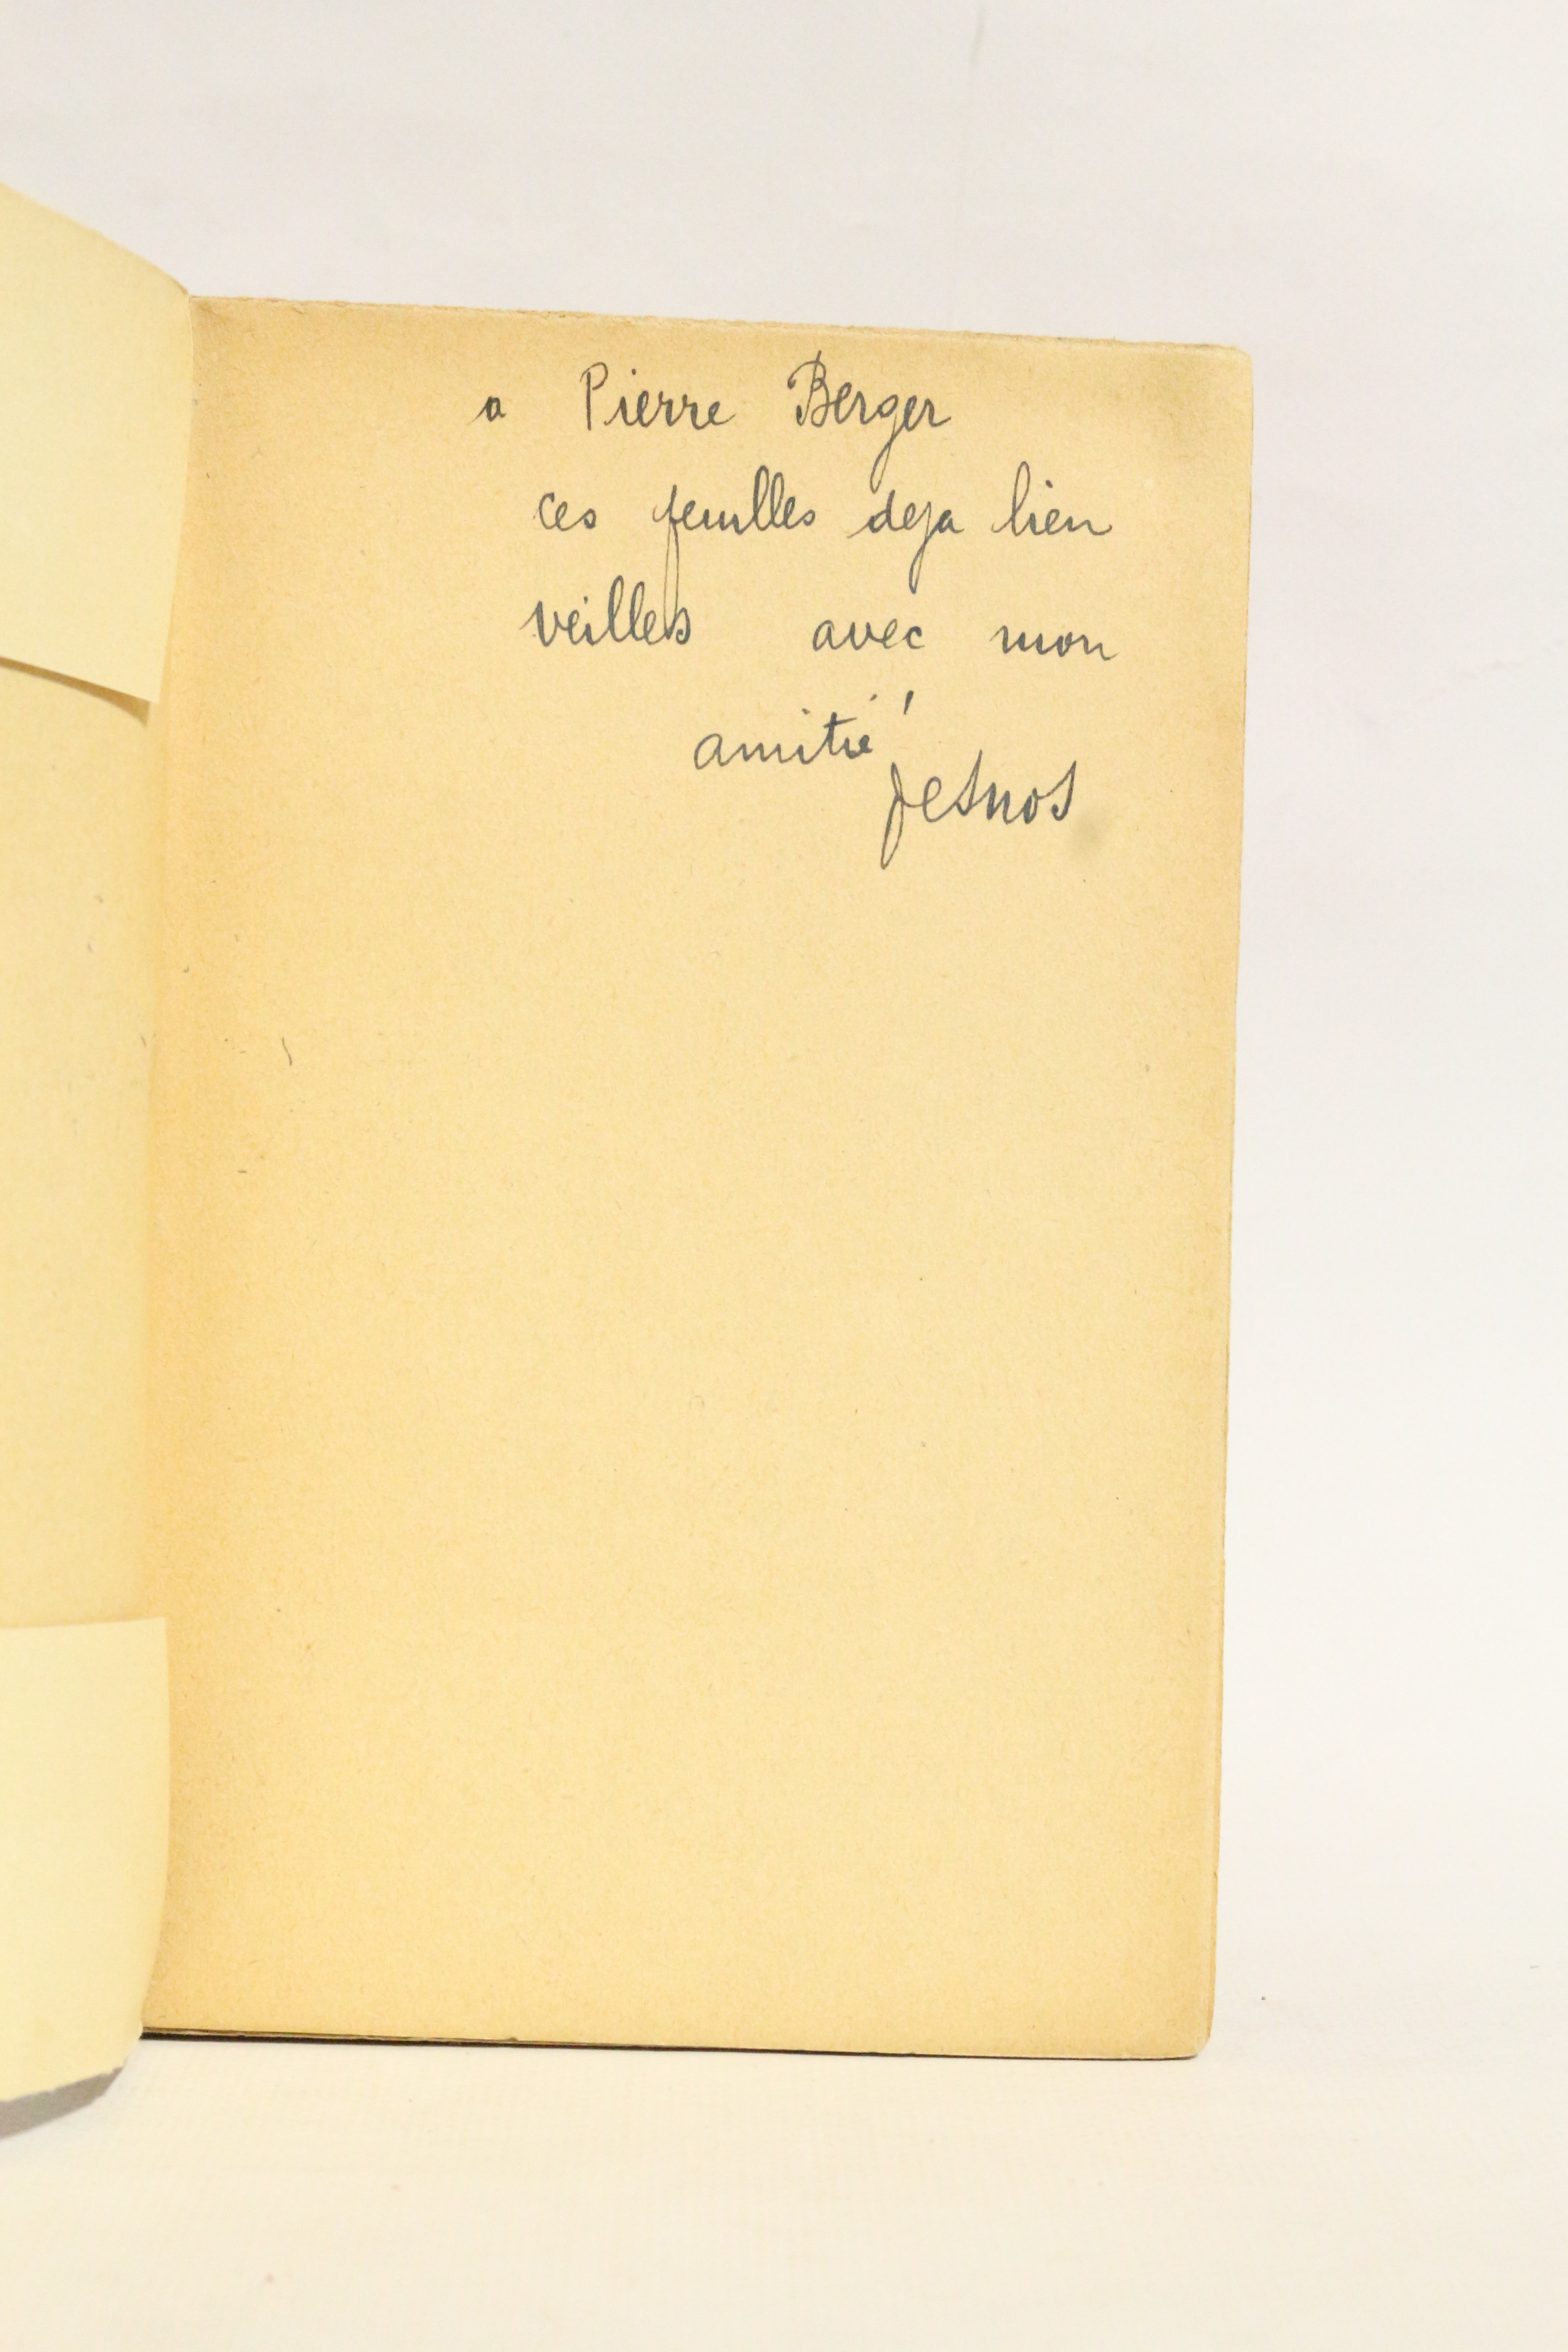 a Pierre Berger
ces feuilles deja bien
veilles avec mon
amitié
Desnos